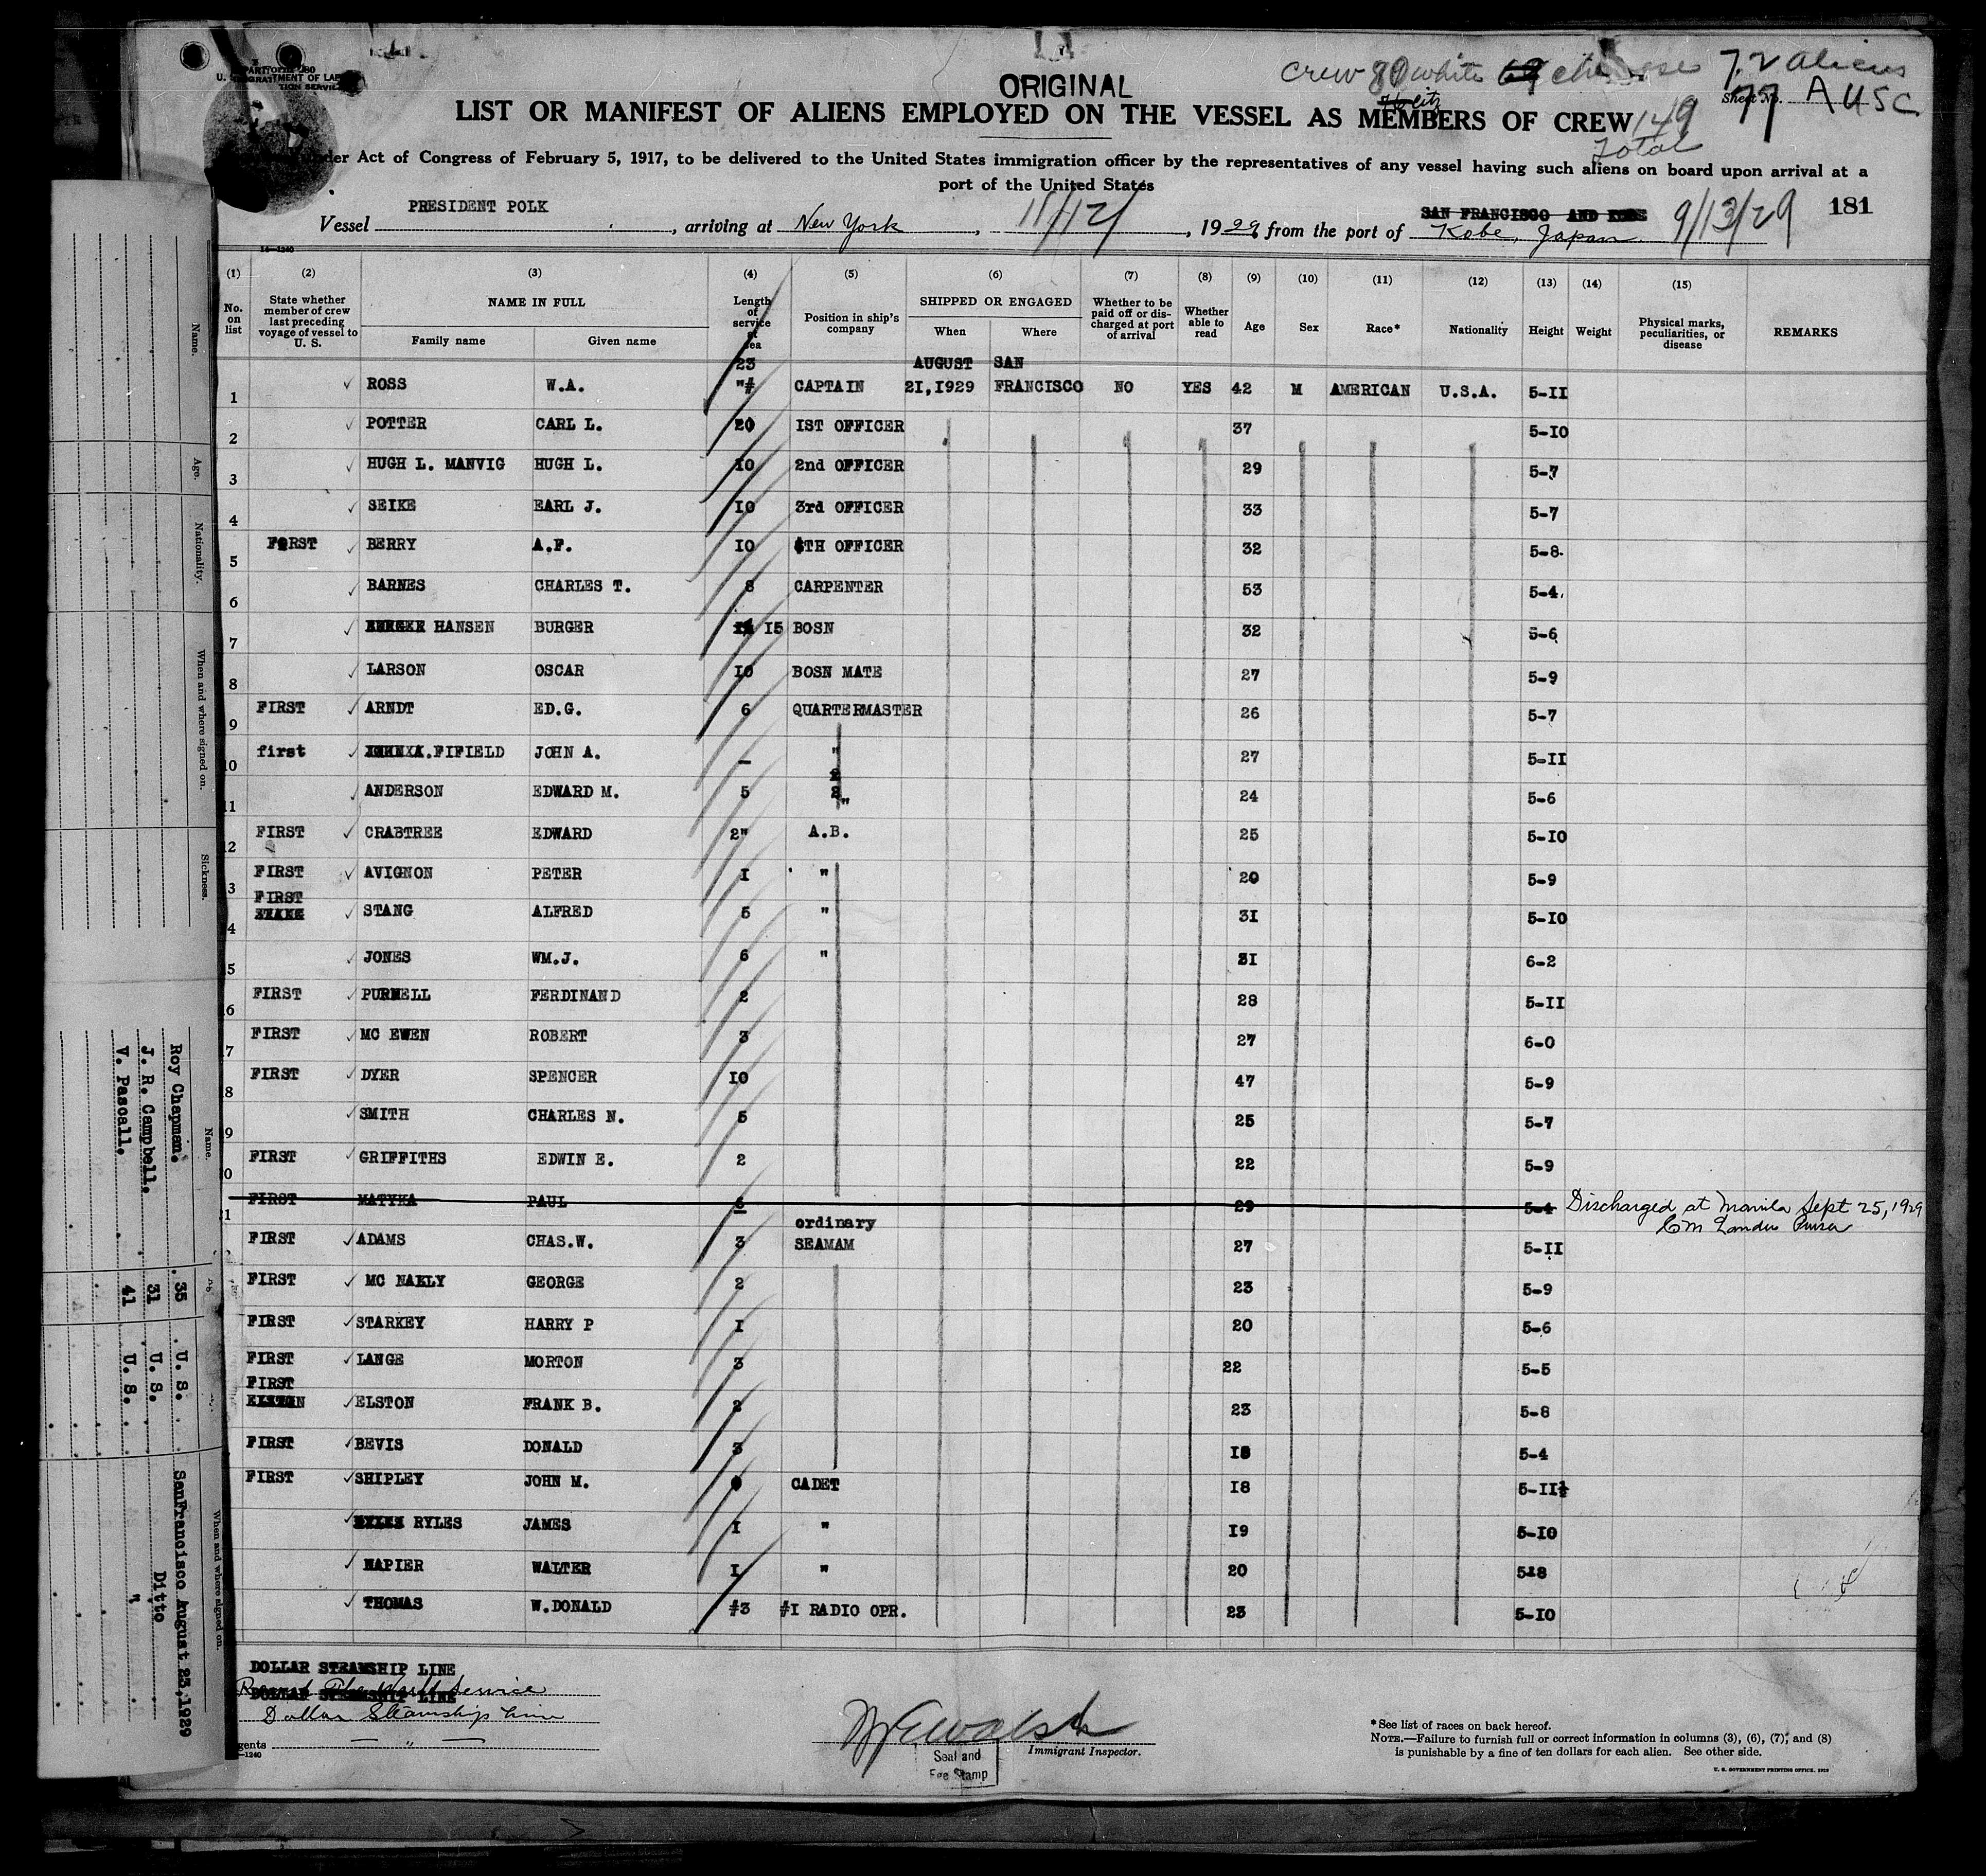 ORIGINAL
Crew 80 white 69 72 Aliens
77 A USC
Sheet No.
LIST OR MANIFEST OF ALIENS EMPLOYED ON THE VESSEL AS MEMBERS OF CREW
149
Total
under Act of Congress of February 5, 1917, to be delivered to the United States immigration officer by the representatives of any vessel having such aliens on board upon arrival at a
port of the United States
Vessel PRESIDENT POLK, arriving at New York, 11/12/, 1929 from the port of SAN FRANCISCO AND KOBE Kobe, Japan. 9/13/29 181
(1) (2) (3) (4) (5) (6) (7) (8) (9) (10) (11) (12) (13) (14) (15)
No. on list State whether member of crew last preceding voyage of vessel to U. S. NAME IN FULL Family name Given name Length of service at sea Position in ship's company SHIPPED OR ENGAGED When Where Whether to be paid off or discharged at port of arrival Whether able to read Age Sex Race* Nationality Height Weight Physical marks, peculiarities, or disease REMARKS
1 ✓ ROSS W.A. 23 CAPTAIN AUGUST 21,1929 SAN FRANCISCO NO YES 42 M AMERICAN U.S.A. 5-11
2 ✓ POTTER CARL L. 20 1ST OFFICER 37 5-10
3 ✓ HUGH L. MANVIG HUGH L. 10 2nd OFFICER 29 5-7
4 ✓ SEIKE EARL J. 10 3rd OFFICER 33 5-7
5 FIRST ✓ BERRY A.F. 10 4TH OFFICER 32 5-8
6 ✓ BARNES CHARLES T. 8 CARPENTER 53 5-4
7 ✓ HANSEN BURGER 15 BOSN 32 5-6
8 ✓ LARSON OSCAR 10 BOSN MATE 27 5-9
9 FIRST ✓ ARNDT ED.G. 6 QUARTERMASTER 26 5-7
10 first ✓ FIFIELD JOHN A. — " 27 5-11
11 ✓ ANDERSON EDWARD M. 5 " 24 5-6
12 FIRST ✓ CRABTREE EDWARD 2" A.B. 25 5-10
3 FIRST ✓ AVIGNON PETER 1 " 20 5-9
4 FIRST ✓ STANG ALFRED 5 " 31 5-10
5 ✓ JONES WM.J. 6 " 31 6-2
6 FIRST ✓ PURNELL FERDINAND 2 28 5-11
7 FIRST ✓ MC EWEN ROBERT 3 27 6-0
8 FIRST ✓ DYER SPENCER 10 47 5-9
9 ✓ SMITH CHARLES N. 5 25 5-7
0 FIRST ✓ GRIFFITHS EDWIN E. 2 22 5-9
1 FIRST MATYKA PAUL 6 29 5-4 Discharged at Manila Sept 25, 1929
CM Landis Purser
FIRST ✓ ADAMS CHAS.W. 3 ordinary SEAMAM 27 5-11
FIRST ✓ MC NALLY GEORGE 2 23 5-9
FIRST ✓ STARKEY HARRY P 1 20 5-6
FIRST ✓ LANGE MORTON 3 22 5-5
FIRST ✓ ELSTON FRANK B. 2 23 5-8
FIRST ✓ BEVIS DONALD 3 18 5-4
FIRST ✓ SHIPLEY JOHN M. CADET 18 5-11½
✓ RYLES JAMES 1 " 19 5-10
✓ NAPIER WALTER 1 " 20 5-8
✓ THOMAS W.DONALD #3 #1 RADIO OPR. 23 5-10
DOLLAR STEAMSHIP LINE
DOLLAR STEAMSHIP LINE
Service
Dollar Steamship Line
gents — " —
Immigrant Inspector.
Seal and
Fee Stamp
*See list of races on back hereof.
NOTE.—Failure to furnish full or correct information in columns (3), (6), (7), and (8)
is punishable by a fine of ten dollars for each alien. See other side.
U. S. GOVERNMENT PRINTING OFFICE. 1925
Name. Age. Nationality. When and where signed on. Sickness.
Name. When and where signed on.
Roy Chapman. 35 U. S. SanFrancisco August 23,1929
J. R. Campbell. 31 U. S. Ditto
V. Pascall. 41 U. S. "